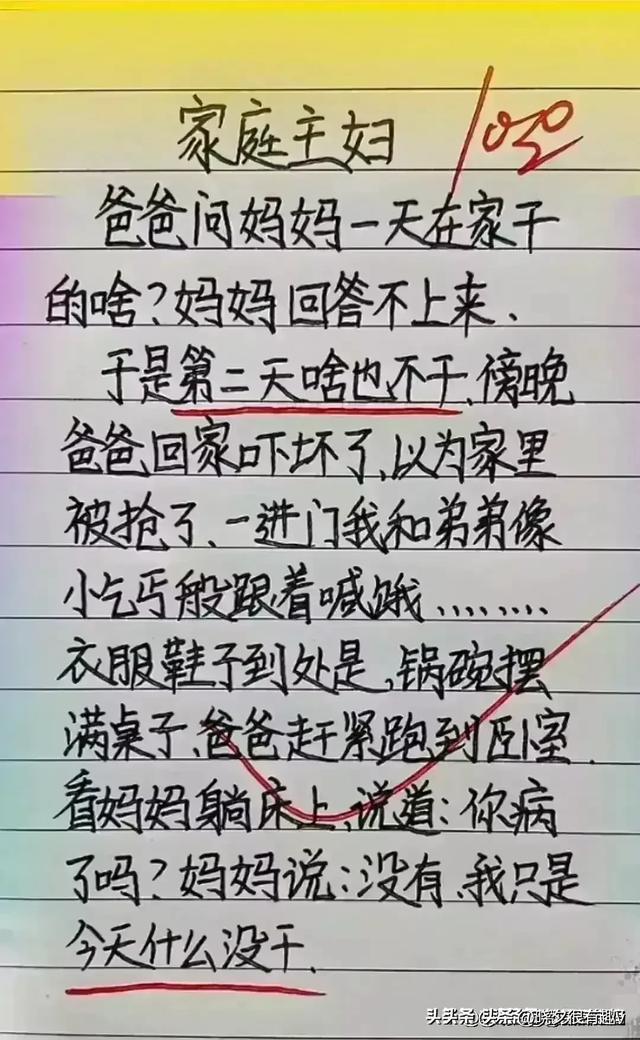 家庭主妇 100
爸爸问妈妈一天在家干
的啥?妈妈回答不上来、
于是第二天啥也不干、傍晚
爸爸回家吓坏了,以为家里
被抢了、一进门我和弟弟像
小乞丐般跟着喊饿........
衣服鞋子到处是,锅碗摆
满桌子、爸爸赶紧跑到卧室、
看妈妈躺床上,说道:你病
了吗?妈妈说:没有、我只是
今天什么没干、